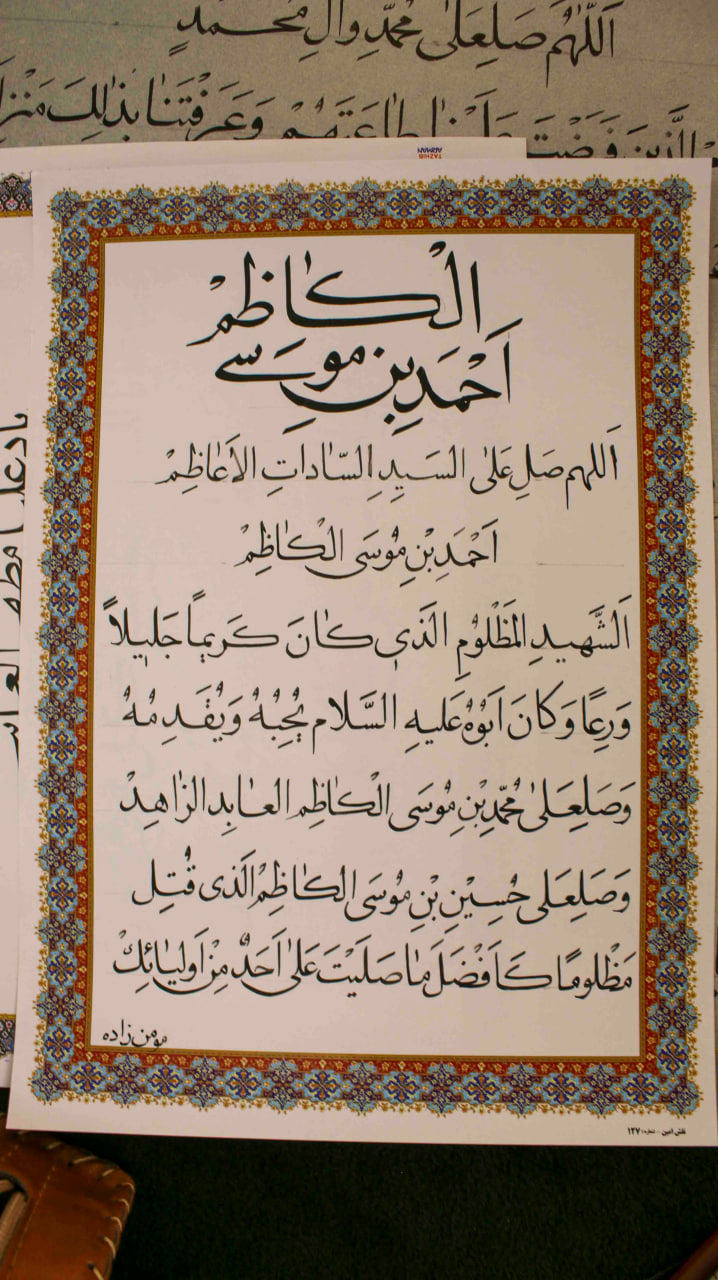 اَللّٰهُم صَلِعَلیٰ مُحَمَّدِ وَالِ مُحَمَدٍ
الَّذینَ فَرَضْتَ عَلَیْنٰا طٰاعَتَهُمْ وَعَرَفْتَنٰا بِذٰلِكَ
TAZHIB
ARMAN
الْكٰاظِمْ
اَحْمَدِبْنِ موسےٰ
اَللهم صَلِ عَلیٰ السَیِدِ السّٰاداتِ الاَعٰاظِمْ
اَحْمَدِبْنِ مُوُسَی الْكٰاظِمْ
اَلشَّهیدِ المَظْلُوُمِ الَّذی كٰانَ كَریماً جَلیلاً
وَرِعًا وَكانَ اَبُوُهُ عَلیهِ السَّلام یُحِبُهُ وَیُقَدِمُهُ
وَصَلِعَلیٰ مُحَمّدِبْنِ مُوُسَی الْكٰاظِم العٰابِدِ الزٰاهِدْ
وَصَلِعَلی حُسِیْنِ بْنِ مُوُسَی الكٰاظِمْ الَّذی قُتِل
مَظْلومًا كَاَفْضَلَ مٰا صَلَیْتَ عَلیٰ اَحَدٍ مِنْ اَولیٰائِكْ
مومن زاده
نقش آمین - شماره: ۱۲۷